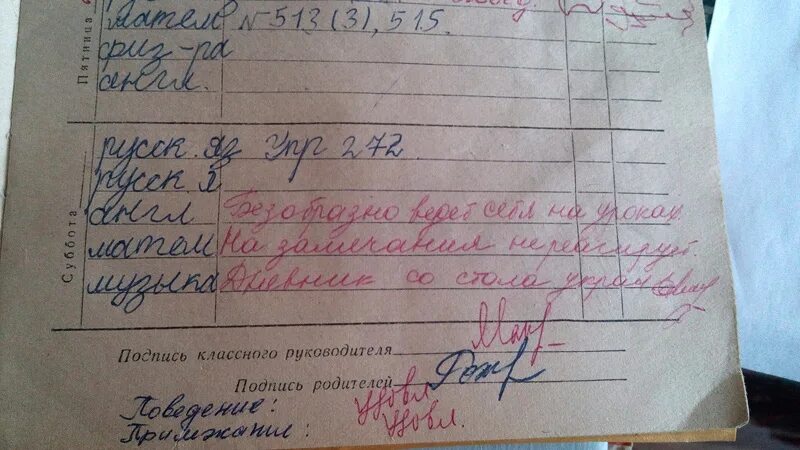 Пятница
матем №513(3), 515.
физ-ра
англ.
Суббота
русск. яз Упр 272
русск. я
англ Безобразно ведёт себя на уроках.
матем На замечания не реагирует.
музыка Дневник со стола украл
Подпись классного руководителя
Подпись родителей
Поведение: Удовл
Прилежание: Удовл.